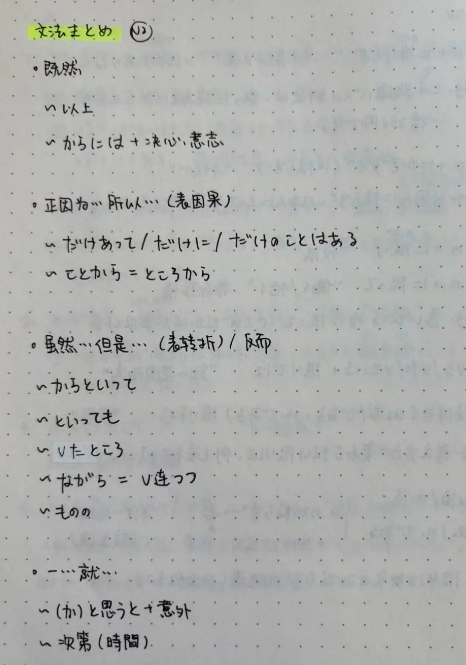 文法まとめ N2
• 既然
~以上
~からには+决心,意志
• 正因为…所以…(表因果)
~だけあって/だけに/だけのことはある
~ことから=ところから
• 虽然…但是…(表转折)/反而
~からといって
~といっても
~Vたところ
~ながら=V连つつ
~ものの
• 一…就…
~(か)と思うと+意外
~次第(時間)